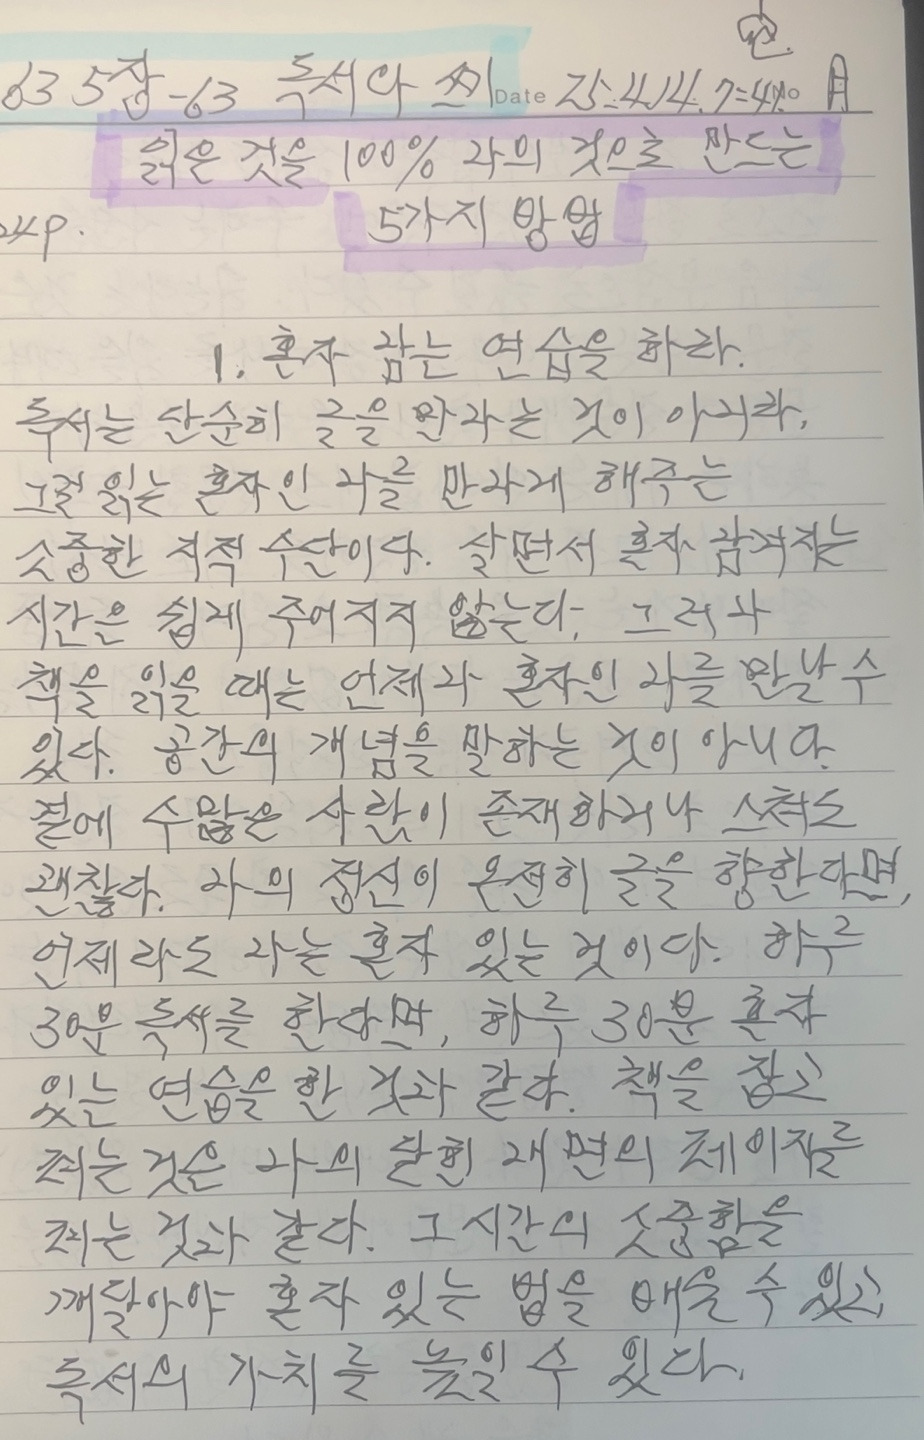 63 5장-63 독서다
Date 25.4.14. 7:4 No 월
읽은 것을 100% 나의 것으로 만드는
24p. 5가지 방법
1. 혼자 남는 연습을 하라.
독서는 단순히 글을 만나는 것이 아니라,
그걸 읽는 혼자인 나를 만나게 해주는
소중한 지적 수단이다. 살면서 혼자 남겨지는
시간은 쉽게 주어지지 않는다. 그러나
책을 읽을 때는 언제나 혼자인 나를 만날 수
있다. 공간의 개념을 말하는 것이 아니다.
곁에 수많은 사람이 존재하거나 스쳐도
괜찮다. 나의 정신이 온전히 글을 향한다면,
언제라도 나는 혼자 있는 것이다. 하루
30분 독서를 한다면, 하루 30분 혼자
있는 연습을 한 것과 같다. 책을 잡고
펴는 것은 나의 닫힌 내면의 페이지를
펴는 것과 같다. 그 시간의 소중함을
깨달아야 혼자 있는 법을 배울 수 있고
독서의 가치를 높일 수 있다.